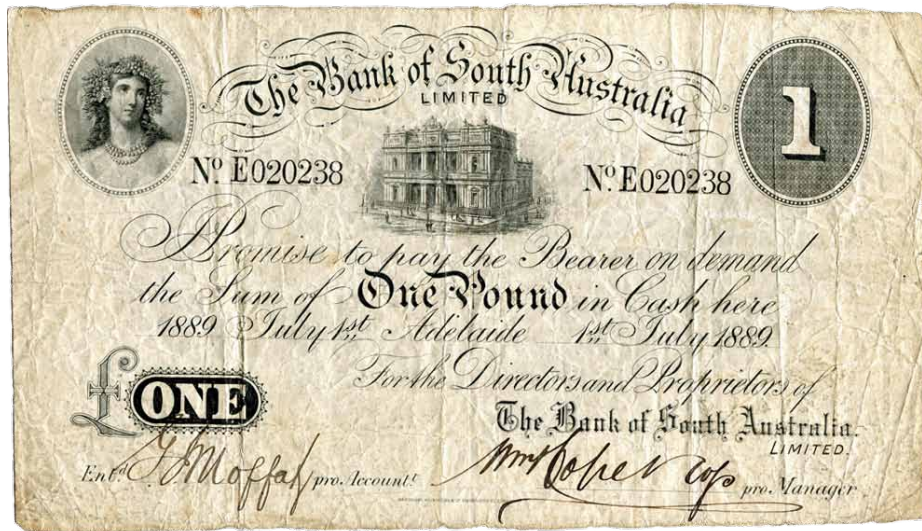 The Bank of South Australia
LIMITED
1
No. E020238 No. E020238
I Promise to pay the Bearer on demand
the Sum of One Pound in Cash here
1889 July 1st Adelaide 1st July 1889
For the Directors and Proprietors of
£ ONE
The Bank of South Australia.
LIMITED.
Entd. Moffat pro Accountt. pro Manager